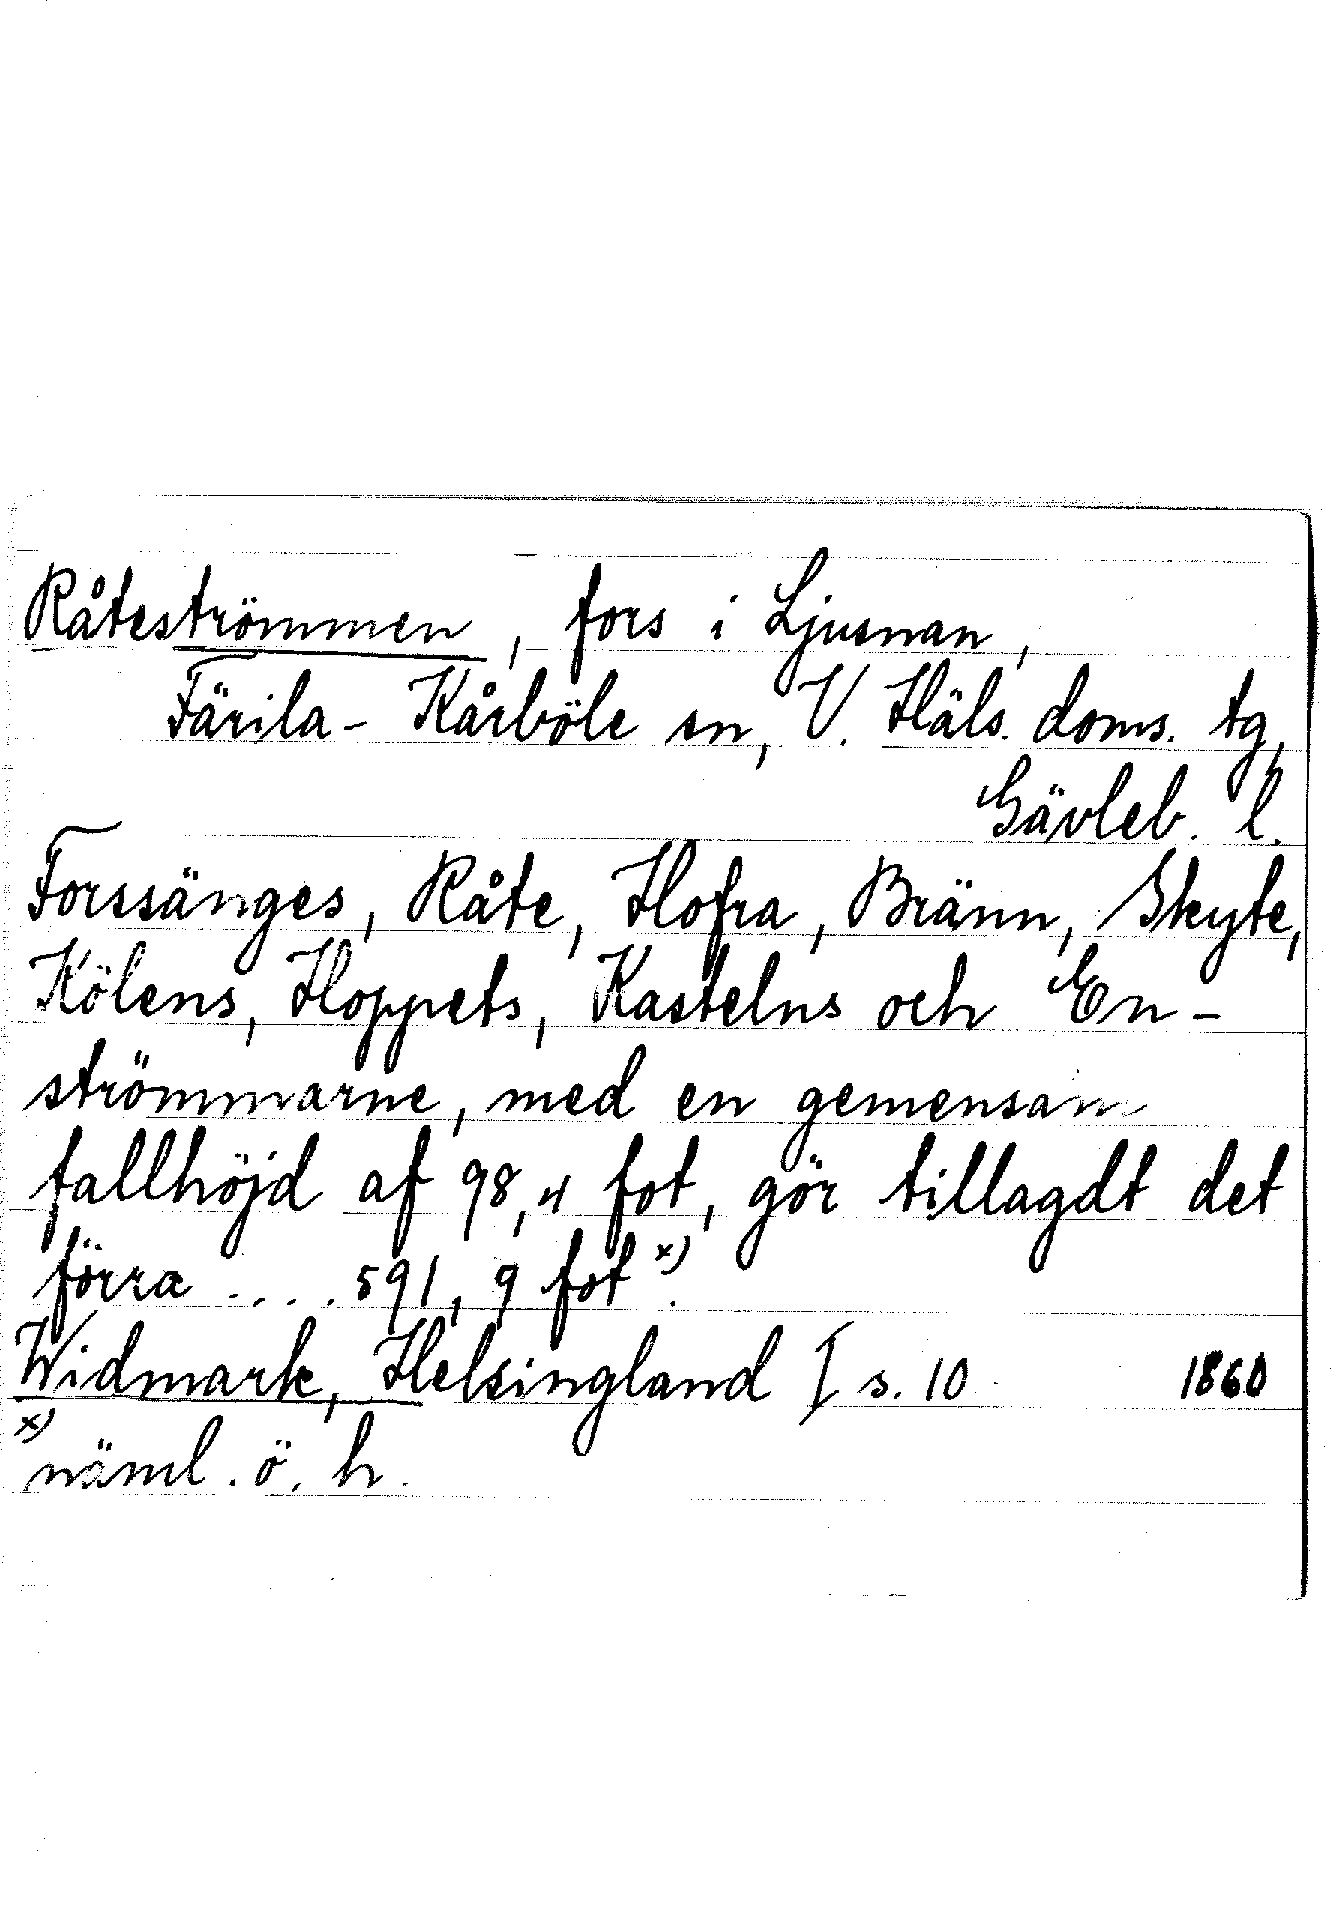 Råteströmmen, fors i Ljusnan,
Färila-Kårböle sn, V. Häls. doms. tg,
Gävleb. l.
Forssänges, Råte, Hofra, Bränn, Skyte,
Kölens, Hoppets, Kastelns och En-
strömmarne, med en gemensam
fallhöjd af 98,4 fot, gör tillagdt det
förra .... 591,9 fot x).
Widmark, Helsingland I s. 10 1860
x) näml. ö. h.